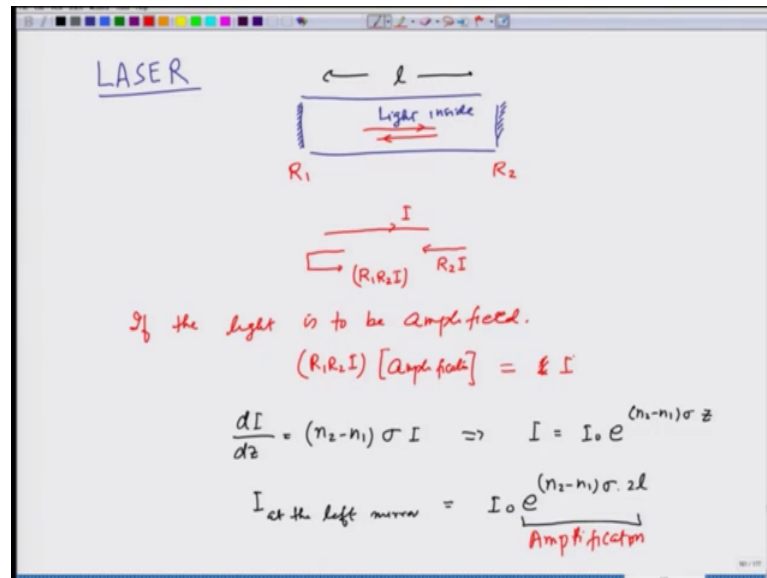 LASER
l
Light inside
R₁ R₂
I
(R₁R₂I) R₂I
If the light is to be amplified.
(R₁R₂I) [amplification] = I
dI/dz = (n₂-n₁) σ I ⇒ I = I₀ e^{(n₂-n₁)σ z}
I at the left mirror = I₀ e^{(n₂-n₁)σ. 2l}
Amplification